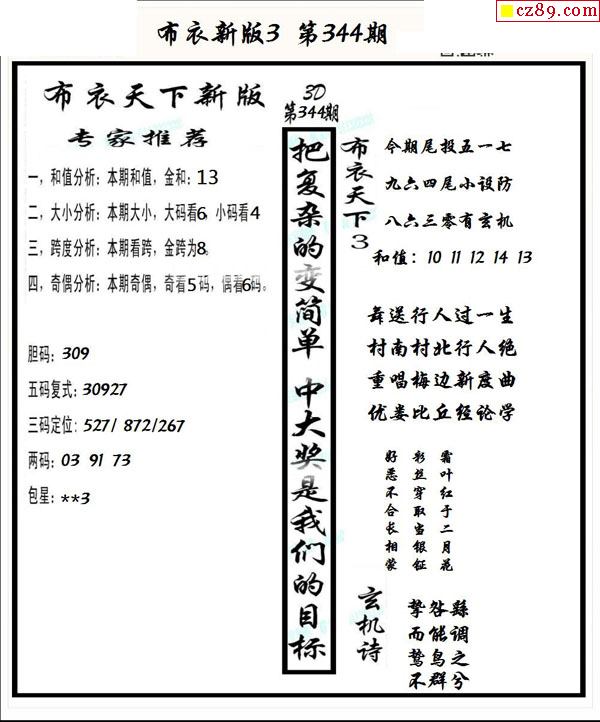 cz89.com
布衣新版3 第344期
布衣天下新版
专家推荐
一，和值分析：本期和值，金和：13
二，大小分析：本期大小，大码看6，小码看4
三，跨度分析：本期看跨，金跨为8。
四，奇偶分析：本期奇偶，奇看5码，偶看6码。
胆码：309
五码复式：30927
三码定位：527/ 872/267
两码：03 91 73
包星：**3
3D
第344期
把复杂的变简单 中大奖是我们的目标
布衣天下3
今期尾投五一七
九六四尾小设防
八六三零有玄机
和值：10 11 12 14 13
舞送行人过一生
村南村北行人绝
重唱梅边新度曲
优娄比丘经论学
霜叶红于二月花
彩丝穿取当银钲
好恶不合长相蒙
玄机诗
挚咎繇
而能调
鸷鸟之
不群兮